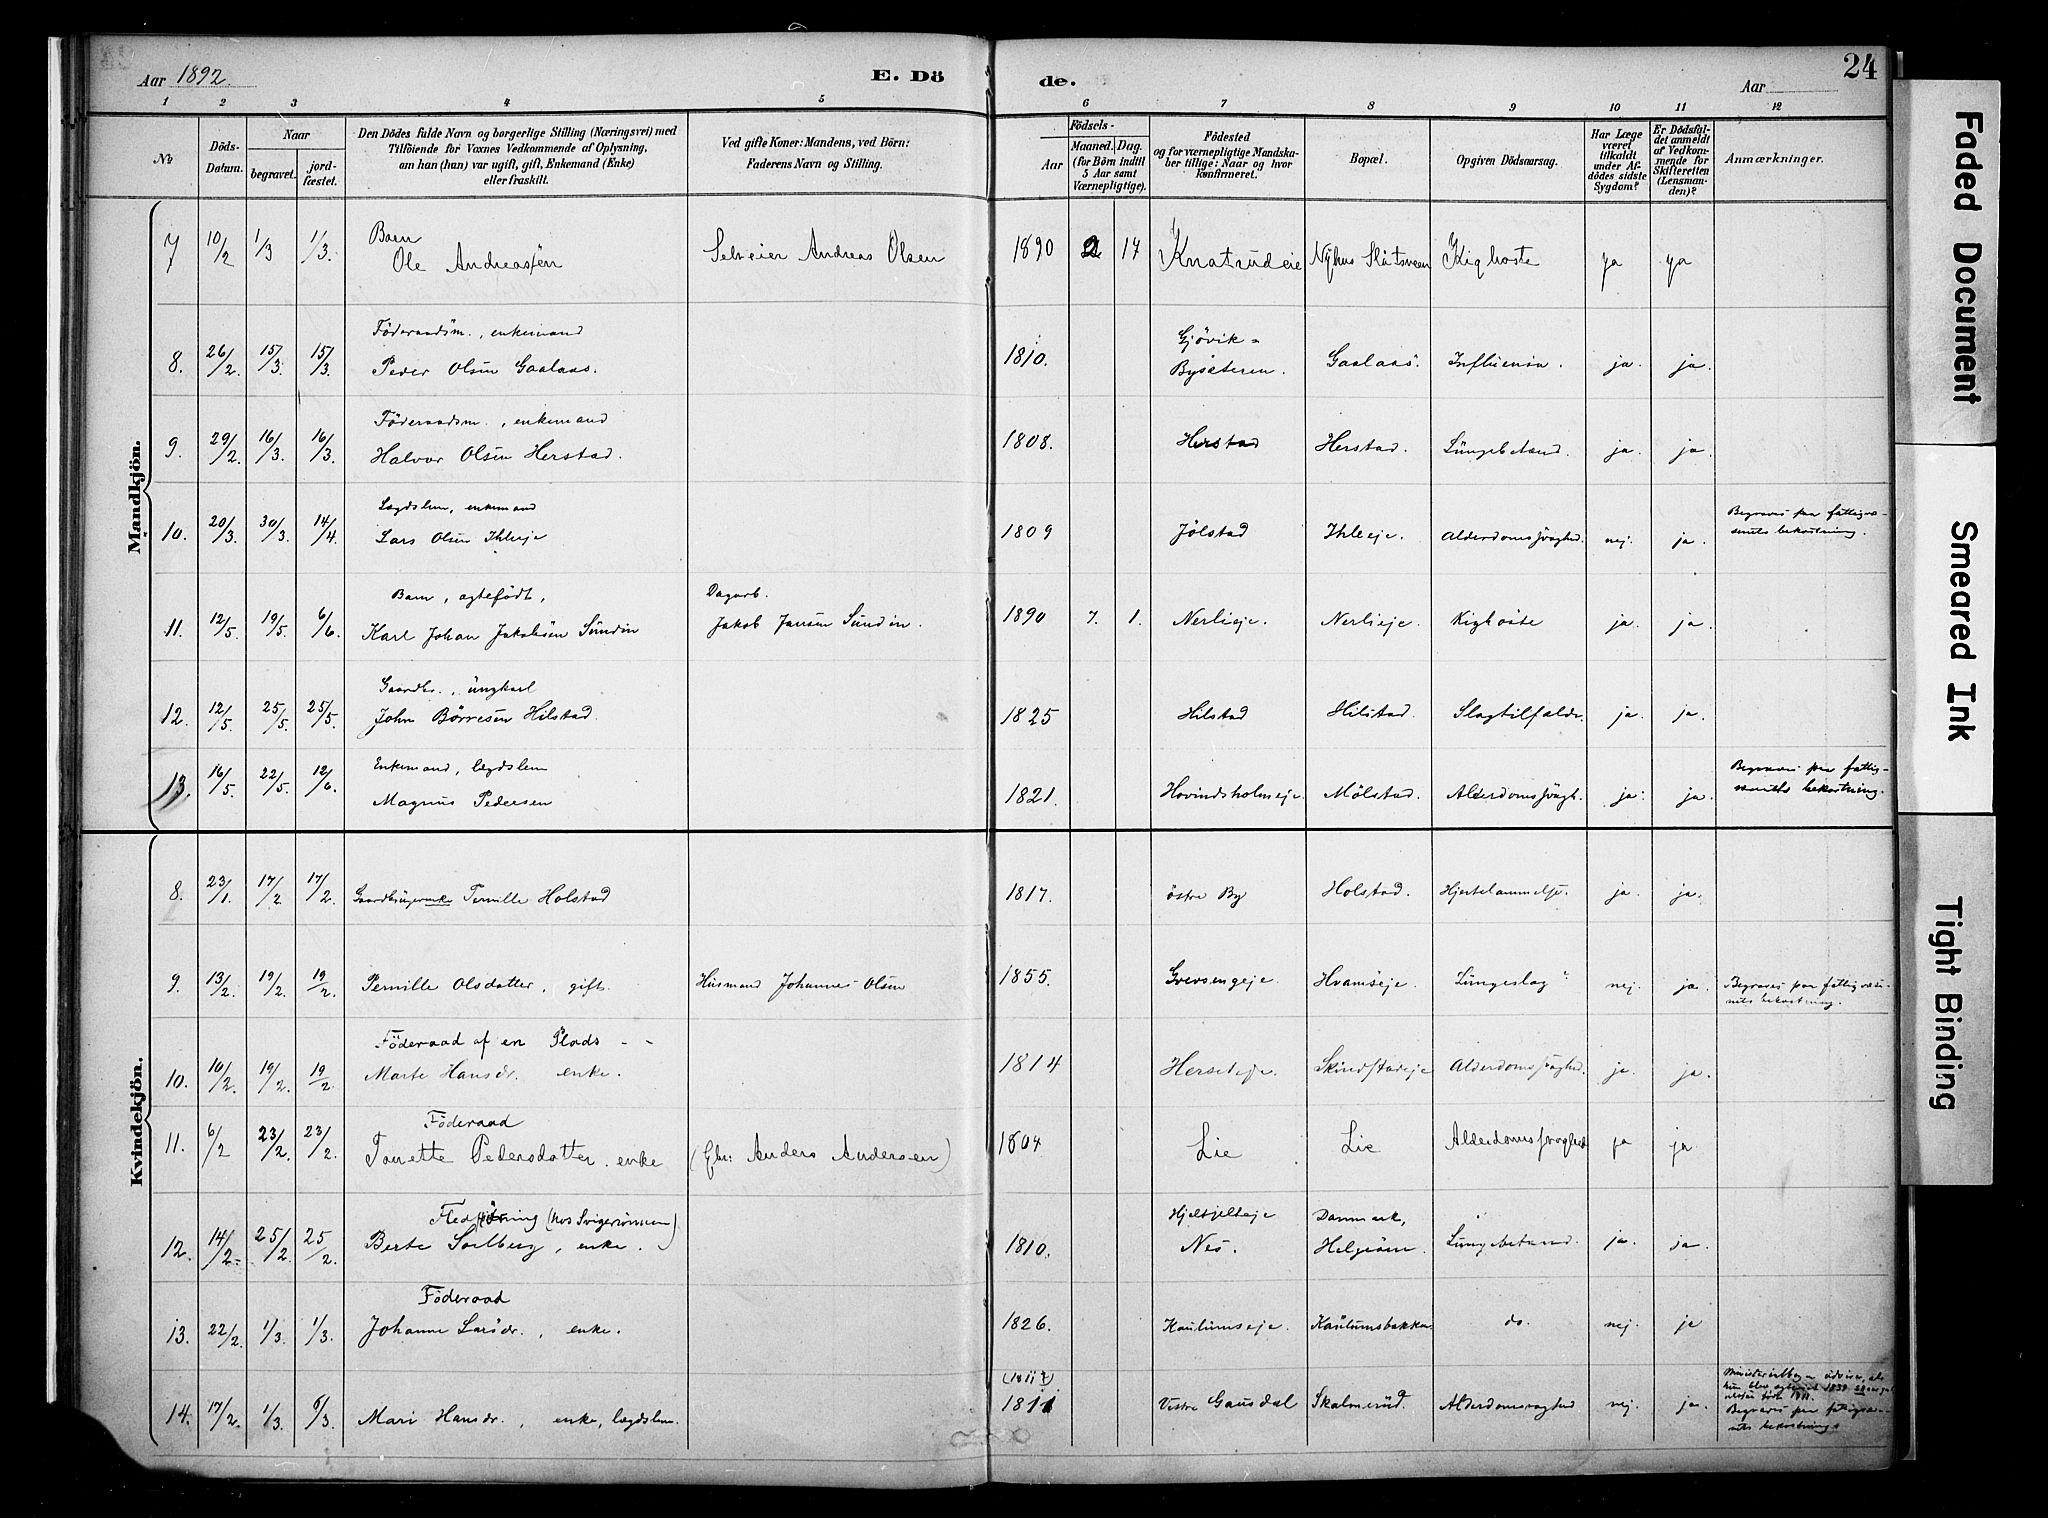 Aar 1892. E. Dö de. Aar 24
1 2 3 4 5 6 7 8 9 10 11 12
№ Döds-Datum. Naar begravet. jord-fæstet. Den Dödes fulde Navn og borgerlige Stilling (Næringsvei) med Tilföiende for Voxnes Vedkommende af Oplysning, om han (hun) var ugift, gift, Enkemand (Enke) eller fraskilt. Ved gifte Koner: Mandens, ved Börn: Faderens Navn og Stilling. Födsels- Aar Maaned. Dag. (for Börn indtil 5 Aar samt Værnepligtige). Födested og for værnepligtige Mandska-ber tillige: Naar og hvor konfirmeret. Bopæl. Opgiven Dödsaarsag. Har Læge været tilkaldt under Af-dödes sidste Sygdom? Er Dödsfal-det anmeldt af Vedkom-mende for Skifteretten (Lensman-den)? Anmærkninger.
Mandkjön.
Barn
7 10/2 1/3 1/3. Ole Andreassen Selveier Andreas Olsen 1890 2 17 Knatrudeie Nyhus Slåtsveen Kighoste ja ja
Föderaadsm., enkemand Gjövik -
8. 26/2. 15/3. 15/3. Peder Olsen Gaalaas. 1810. Bysæteren. Gaalaas. Influensa. ja. ja.
Föderaadsm., enkemand
9. 29/2. 16/3. 16/3. Halvor Olsen Herstad. 1808. Herstad Herstad. Lungebetænd. ja. ja.
Lægdslem, enkemand Begraves paa fattigvæ-
10. 20/3. 30/3. 14/4. Lars Olsen Ihleeje 1809 Jølstad Ihleeje. Alderdomssvaghed. nej. ja. senets bekostning.
Barn, ægtefödt, Dagarb.
11. 12/5. 19/5. 6/6. Karl Johan Jakobsen Sundin Jakob Jansen Sundin. 1890 7. 1. Nerlieje. Nerlieje. Kighoste ja. ja.
Gaardbr., ungkarl
12. 12/5. 25/5. 25/5. John Börresen Hilstad. 1825 Hilstad Hilstad. Slagtilfælde. ja. ja.
Enkemand, lægdslem Begraves paa fattig-
13. 16/5. 22/5. 12/6. Magnus Pedersen 1821. Hovindsholmeje. Mölstad. Alderdomssvagh. ja. ja. væsenets bekostning.
Kvindekjön.
8. 23/1. 17/2 17/2. Gaardbrugerenke Pernille Holstad 1817. östre By Holstad. Hjertelammelse. ja. ja.
9. 13/2. 19/2. 19/2. Pernille Olsdatter, gift. Husmand Johannes Olsen 1855. Grevsengeje. Hvamseje. Lungeslag nej. ja. Begraves paa fattigvæse-
nets bekostning.
Föderaad af en Plads - -
10. 10/2. 19/2. 19/2. Marte Hansdr. enke. 1814 Herseteje. Skindstadeje Alderdomssvaghed. ja. ja.
Föderaad
11. 6/2 23/2. 23/2. Tonette Pedersdatter. enke (Gbr: Anders Andersen) 1804 Lie Lie Alderdomssvaghed ja ja
(hos Svigersönnen) Danmark,
12. 14/2. 25/2. 25/2. Berte Solberg, enke. 1810. Nes. Helgeöen. Lungebetænd. ja. ja.
Föderaad
13. 22/2. 1/3. 1/3. Johanne Larsdr., enke. 1826. Kaulumseje. Kaulumsbakken do. nej. ja
14. 17/2. 1/3. 6/3. Mari Hansdr., enke, lægdslem. 1811 Vestre Gausdal Skalmerud. Alderdomsvaghed nej. ja.
Begraves paa fattigvæ-
nets bekostning.
Faded Document
Smeared Ink
Tight Binding